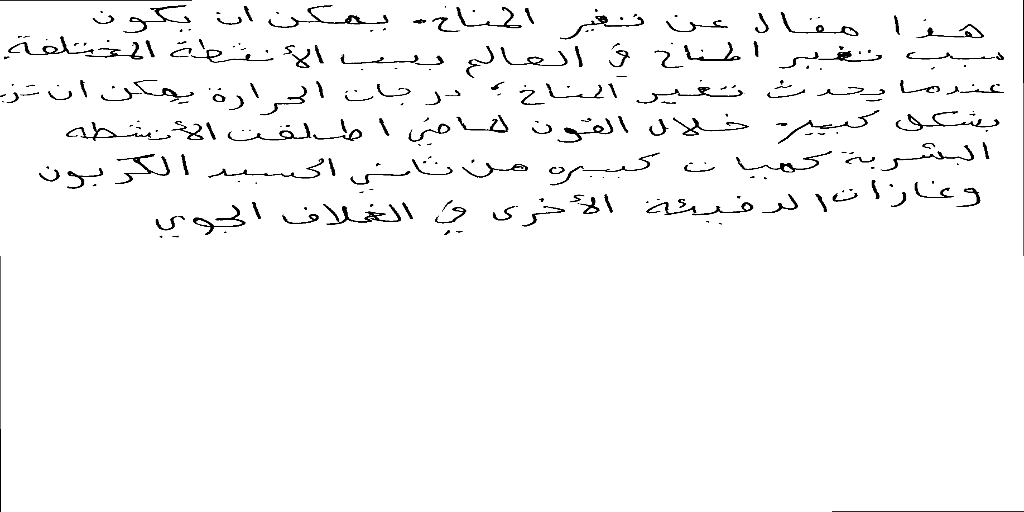 هذا مقال عن تغير المناخ. يمكن ان يكون
سبب تغير المناخ في العالم بسبب الأنشطة المختلفة.
عندما يحدث تغير المناخ، درجات الحرارة يمكن ان تز
بشكل كبير. خلال القرن لماضي اطلقت الأنشطه
البشرية كميات كبيره من ثاني اكسيد الكربون
وغازات الدفيئة الأخرى في الغلاف الجوي